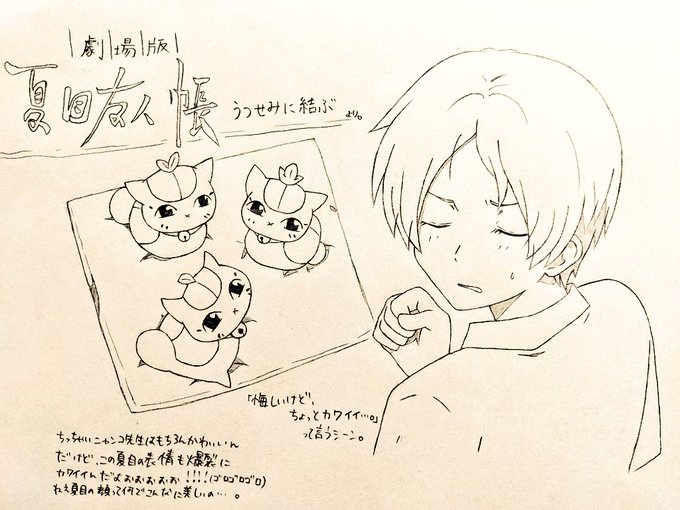 劇場版
夏目友人帳
うつせみに結ぶ より。
「悔しいけど、
ちょっとカワイイ…。」
って言うシーン。
ちっちゃいニャンコ先生はもちろんかわいいん
だけど、この夏目の表情も爆裂に
カワイイんだよぉぉぉぉぉ!!!!(ゴロゴロゴロ)
ねぇ夏目の頬って何でこんなに美しいの…。